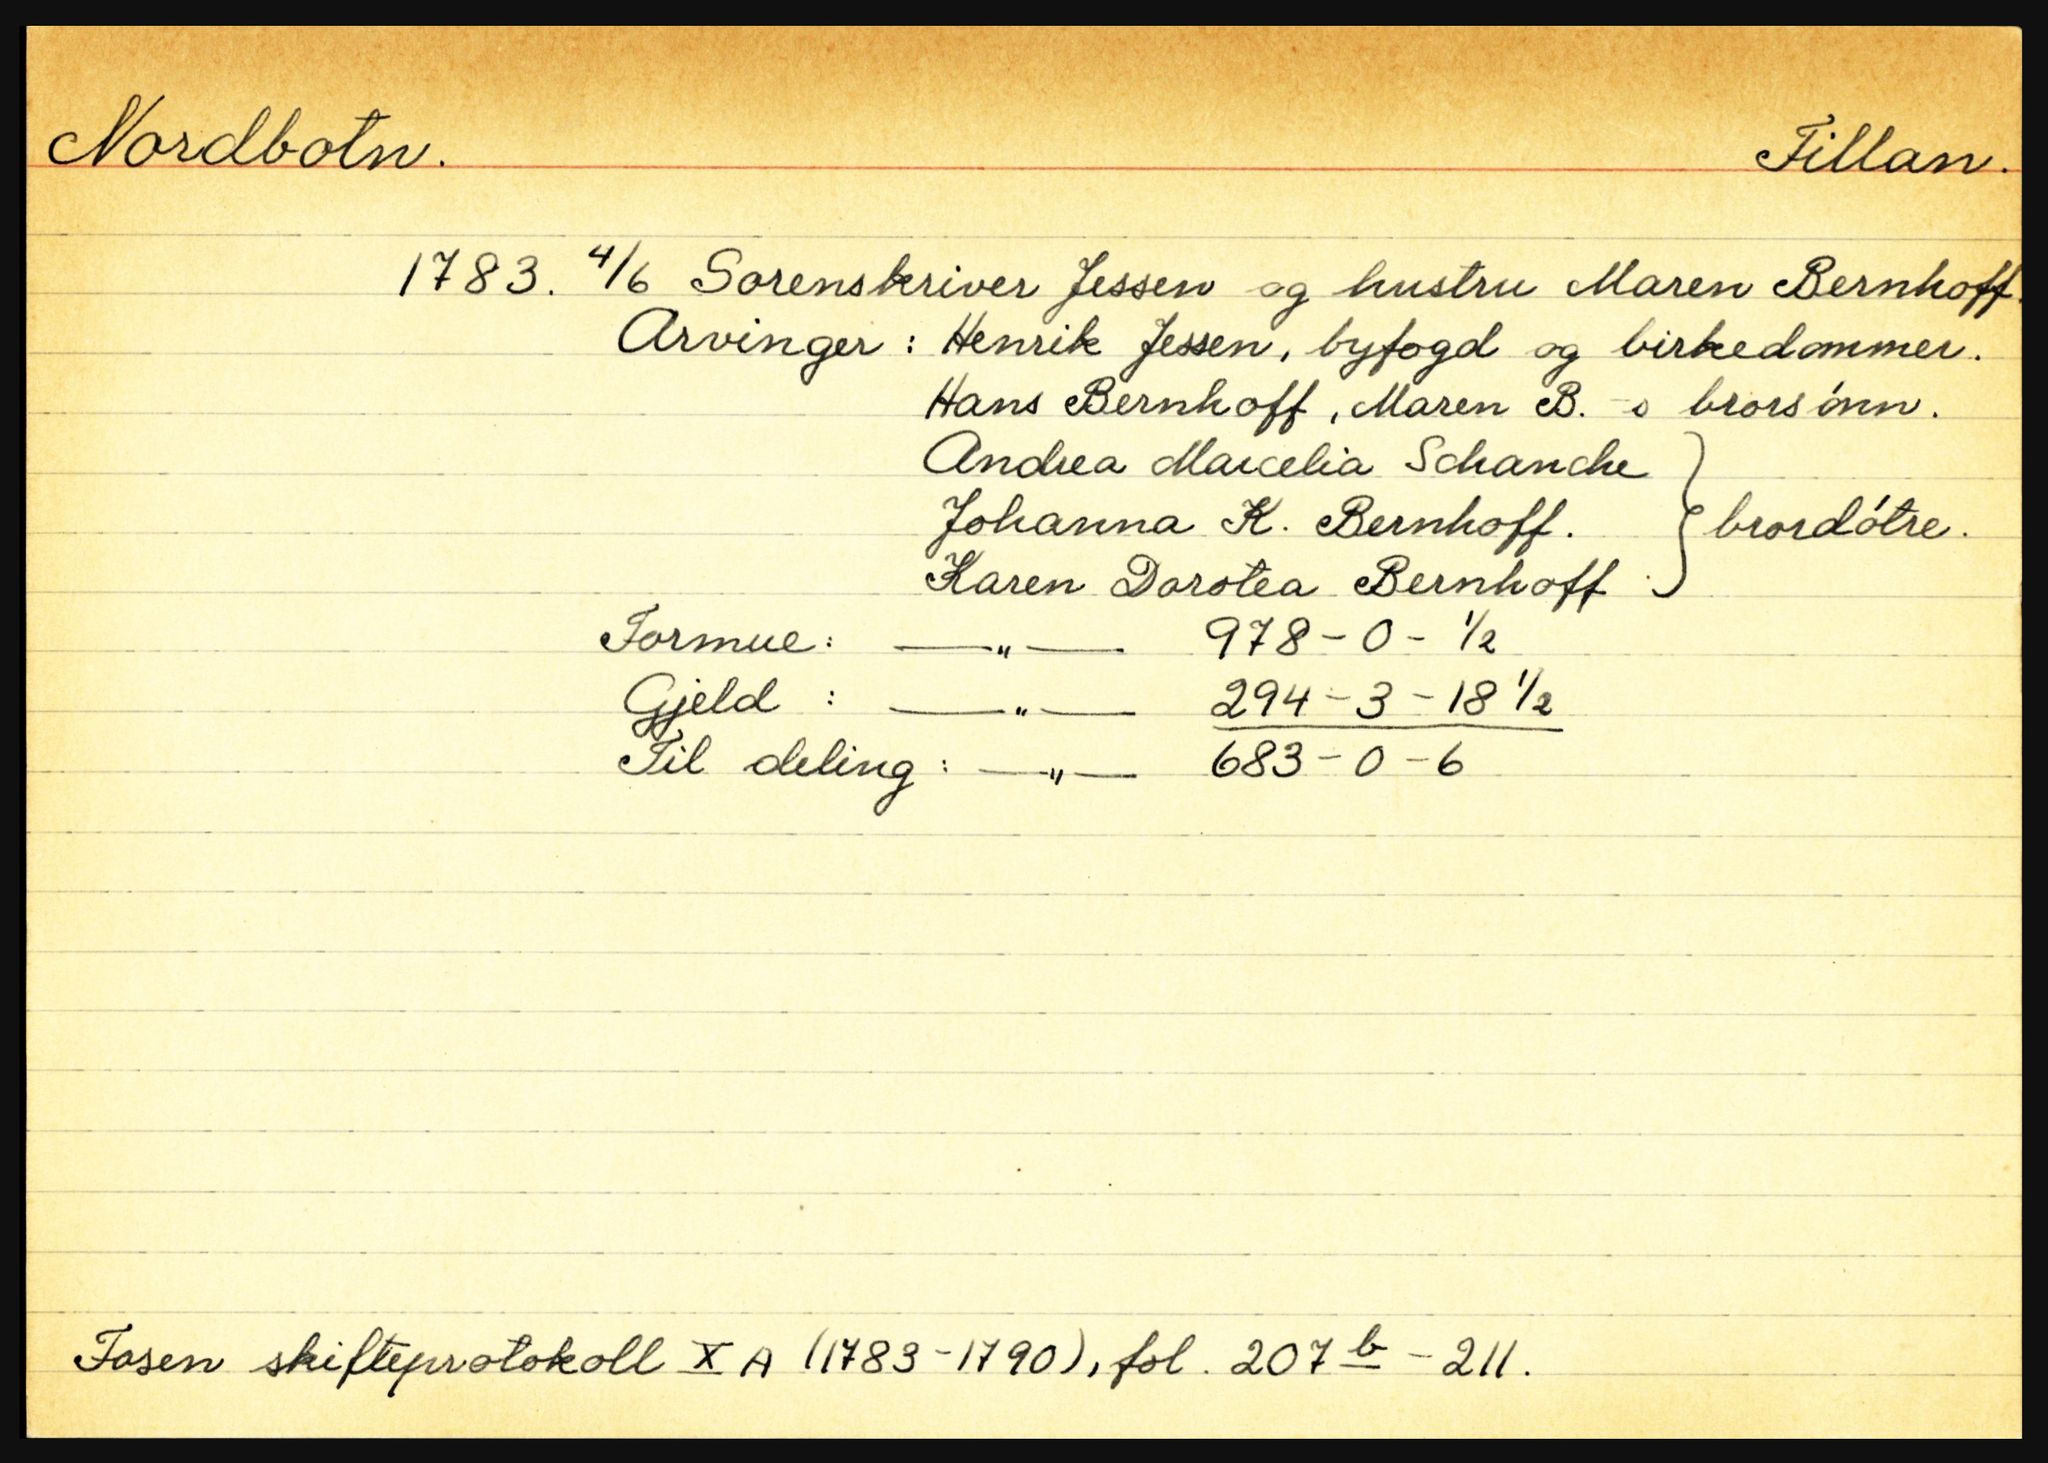 Nordbotn. Fillan.
1783. 4/6 Sorenskriver Jessen og hustru Maren Bernhoff.
Arvinger: Henrik Jessen, byfogd og birkedommer.
Hans Bernhoff, Maren B. -s brorsónn.
Andrea Marcelia Schanche
Johanna K. Bernhoff. } brordótre.
Karen Dorotea Bernhoff
Formue: —"— 978-0-1/2
Gjeld: —"— 294-3-18 1/2
Til deling: —"— 683-0-6
Fosen skifteprotokoll X A (1783-1790), fol. 207 b - 211.